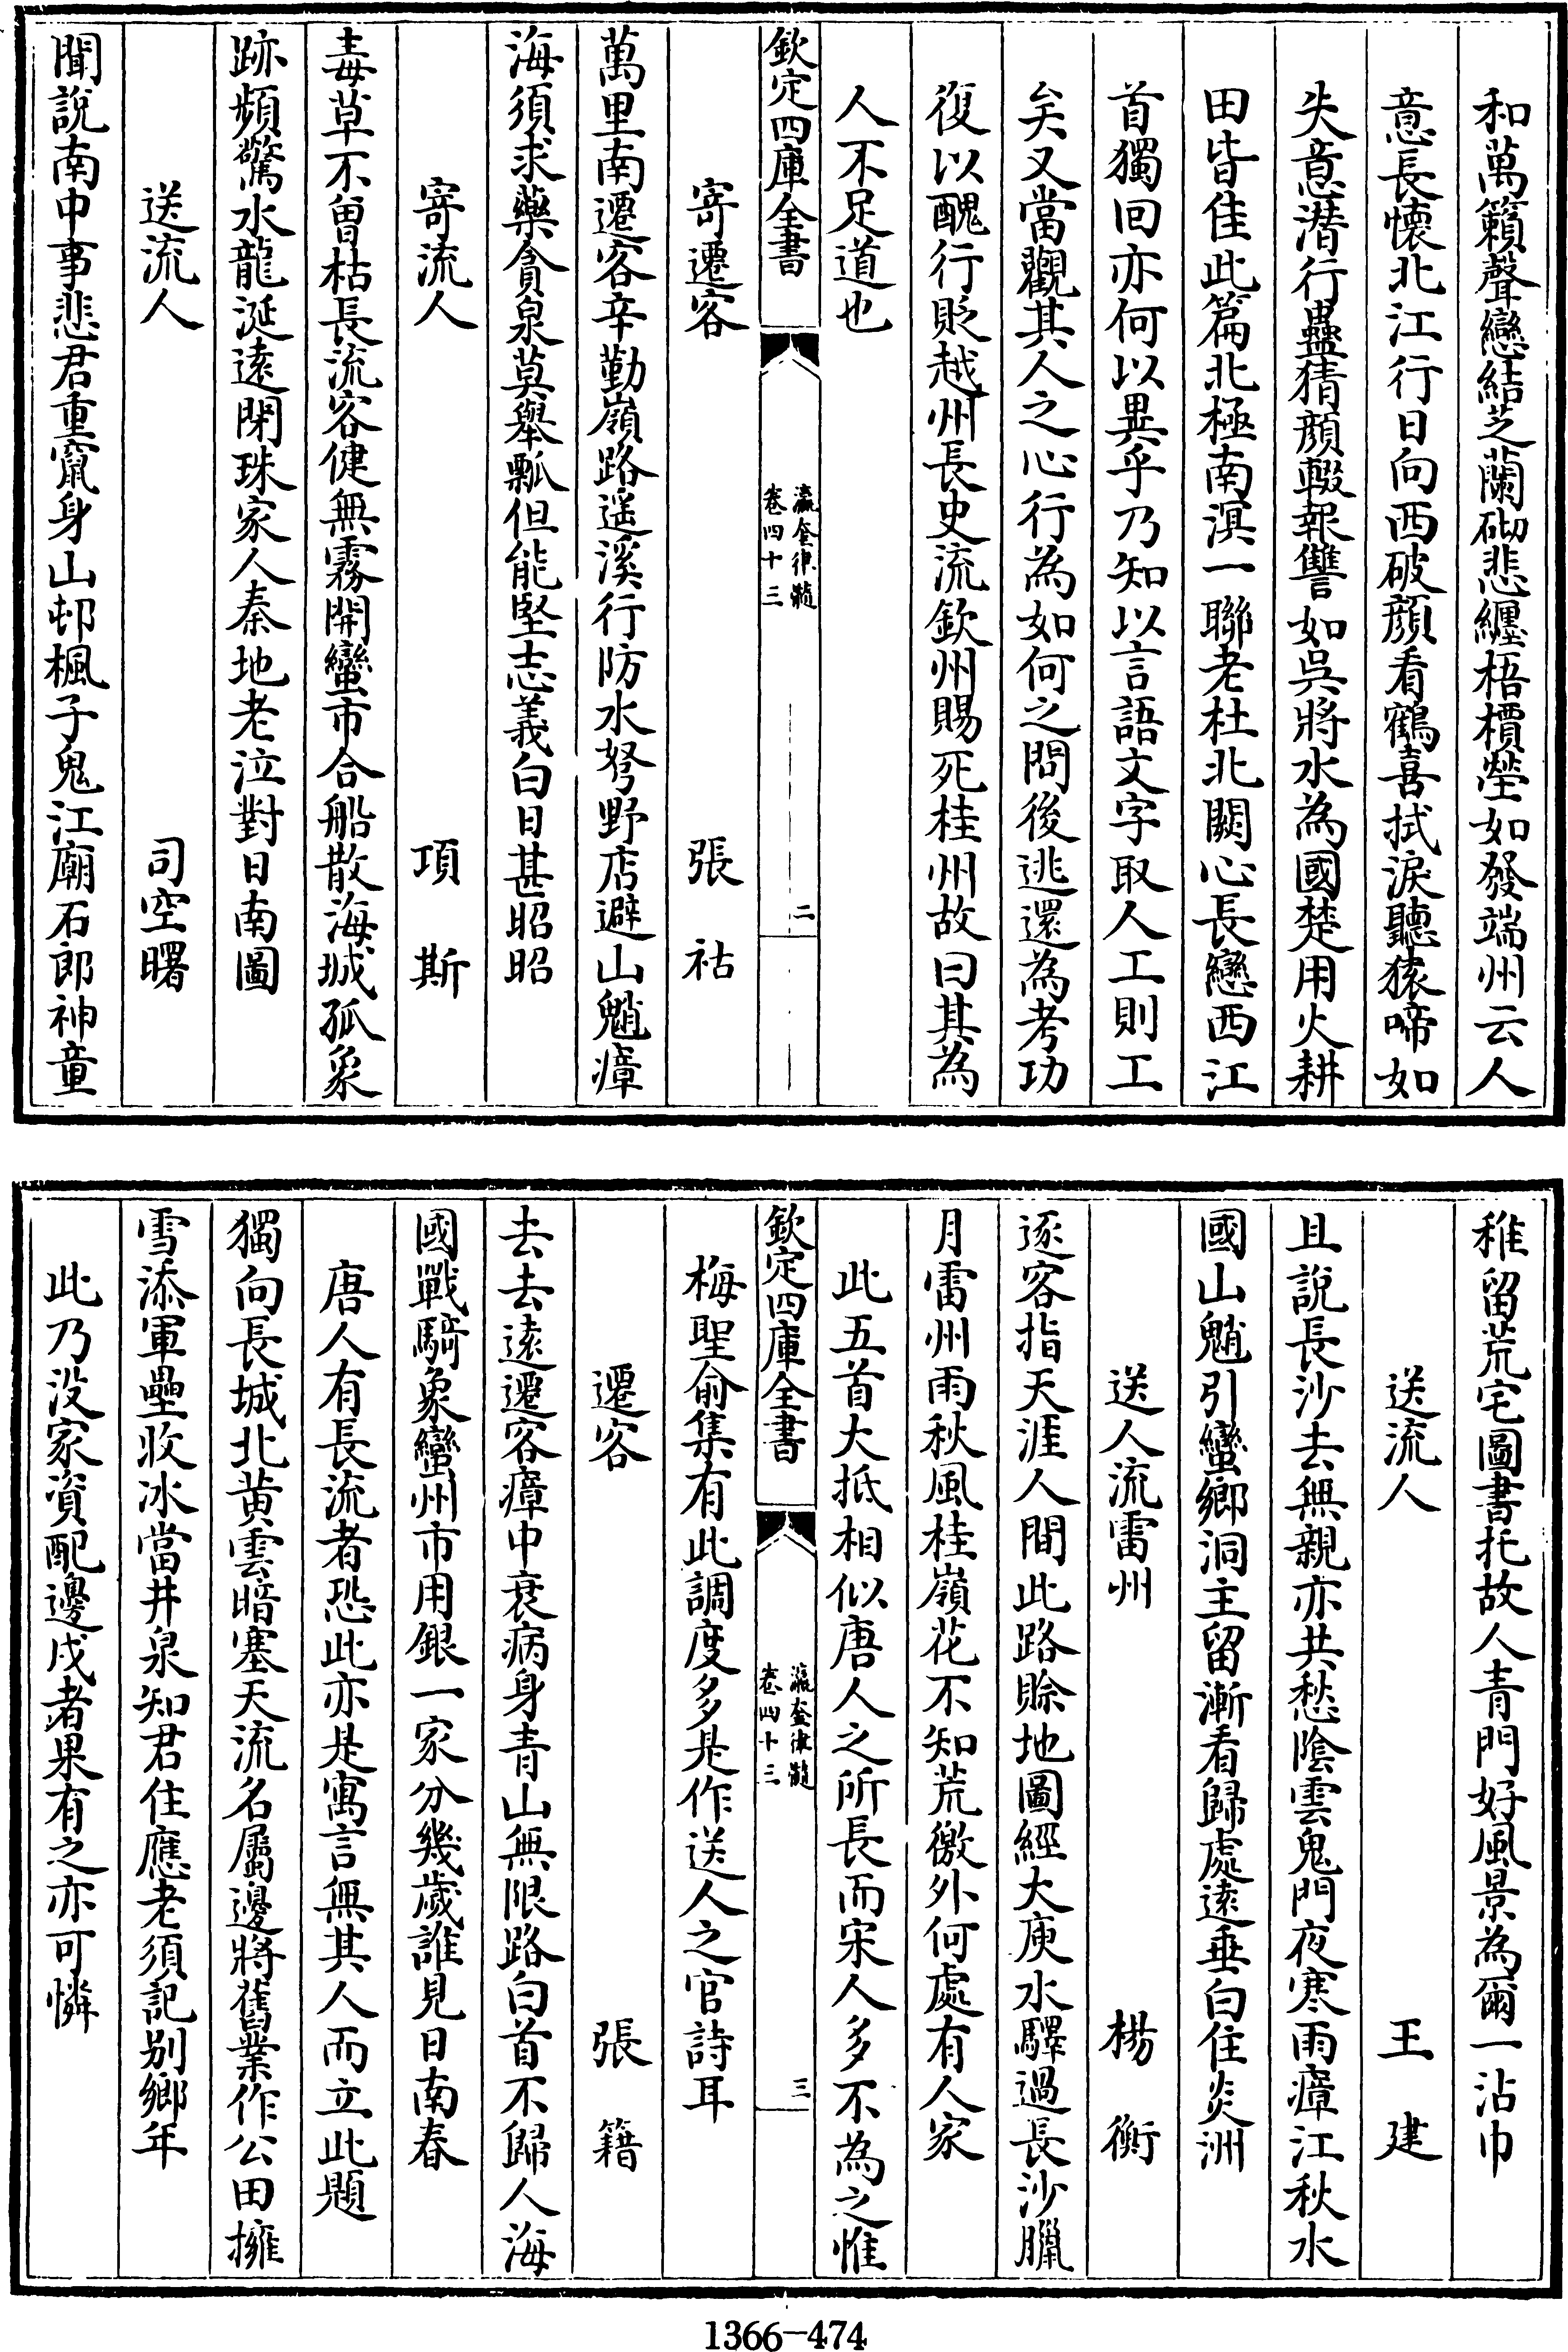 和萬籟聲戀結芝蘭砌悲纏梧檟塋如發端州云人
意長懷北江行日向西破顔看鶴喜拭淚聽猿啼如
失意潛行蠱猜顔輟報讐如吳將水為國楚用火耕
田皆佳此篇北極南溟一聯老杜北闕心長戀西江
首獨回亦何以異乎乃知以言語文字取人工則工
矣又當觀其人之心行為如何之問後逃還為考功
復以醜行貶越州長史流欽州賜死桂州故曰其為
人不足道也
欽定四庫全書
瀛奎律髓
卷四十三
二
寄遷客 張祜
萬里南遷客辛勤嶺路遥溪行防水弩野店避山魈瘴
海須求藥貪泉莫舉瓢但能堅志義白日甚昭昭
寄流人 項斯
毒草不曾枯長流客健無霧開蠻市合船散海城孤象
跡頻驚水龍涎遠閉珠家人秦地老泣對日南圖
送流人 司空曙
聞說南中事悲君重竄身山邨楓子鬼江廟石郎神童
稚留荒宅圖書托故人青門好風景為爾一沾巾
送流人 王建
且說長沙去無親亦共愁陰雲鬼門夜寒雨瘴江秋水
國山魈引蠻鄉洞主留漸看歸處遠垂白住炎洲
送人流雷州 楊衡
逐客指天涯人間此路賒地圖經大庾水驛過長沙臘
月雷州雨秋風桂嶺花不知荒徼外何處有人家
此五首大抵相似唐人之所長而宋人多不為之惟
欽定四庫全書
瀛奎律髓
卷四十三
三
梅聖俞集有此調度多是作送人之官詩耳
遷客 張籍
去去遠遷客瘴中衰病身青山無限路白首不歸人海
國戰騎象蠻州市用銀一家分幾歲誰見日南春
唐人有長流者恐此亦是寓言無其人而立此題
獨向長城北黃雲暗塞天流名屬邊將舊業作公田擁
雪添軍壘收冰當井泉知君住應老須記别鄉年
此乃没家資配邊戍者果有之亦可憐
1366-474